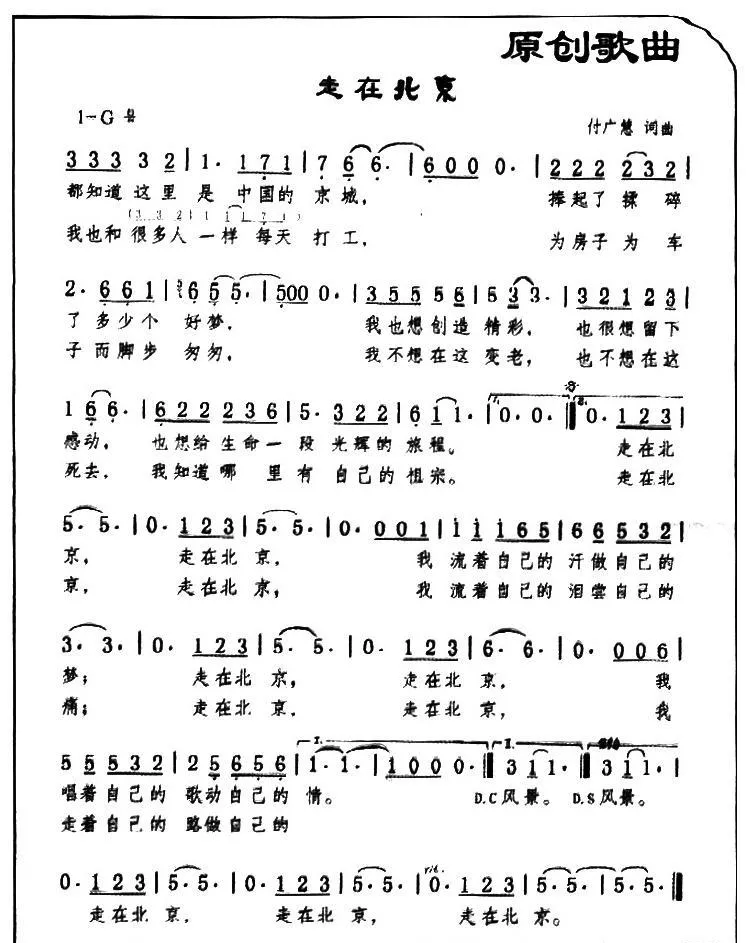 原创歌曲
走在北京
1=G
付广慧 词曲
3 3 3 3 2 | 1. 1 7 1 | 7 6 6. | 6 0 0 0. | 2 2 2 2 3 2 |
都知道 这里 是 中国的 京城， 捧起了 揉 碎
(3 3 2 | 1 1 7 1)
我也和 很多人 一样 每天 打工， 为房子为 车
2. 6 6 1 | 6 5 5. | 5 0 0 0. | 3 5 5 5 6 | 5 3 3. | 3 2 1 2 3 |
了多少个 好梦， 我也想创造 精彩， 也很想留下
子而脚步 匆匆， 我不想在这 变老， 也不想在这
1 6 6. | 6 2 2 2 3 6 | 5. 3 2 2 | 6 1 1. | 0. 0. :| 0. 1 2 3 |
感动， 也想给生命一 段 光辉的 旅程。 走在北
死去， 我知道哪 里有 自己的 祖宗。 走在北
5. 5. | 0. 1 2 3 | 5. 5. | 0. 0 0 1 | 1 1 1 6 5 | 6 6 5 3 2 |
京， 走在北 京， 我 流着自己的 汗做自己的
京， 走在北 京， 我 流着自己的 泪尝自己的
3. 3. | 0. 1 2 3 | 5. 5. | 0. 1 2 3 | 6. 6. | 0. 0 0 6 |
梦； 走在北 京， 走在北 京， 我
痛； 走在北 京， 走在北 京， 我
5 5 5 3 2 | 2 5 6 5 6 | 1. 1. | 1 0 0 0. :| 3 1 1. :| 3 1 1. |
唱着自己的 歌动自己的 情。 D.C风景。 D.S风景。
走着自己的 路做自己的
0. 1 2 3 | 5. 5. | 0. 1 2 3 | 5. 5. | 0. 1 2 3 | 5. 5. | 5. 5. ||
走在北 京， 走在北 京， 走在北 京。